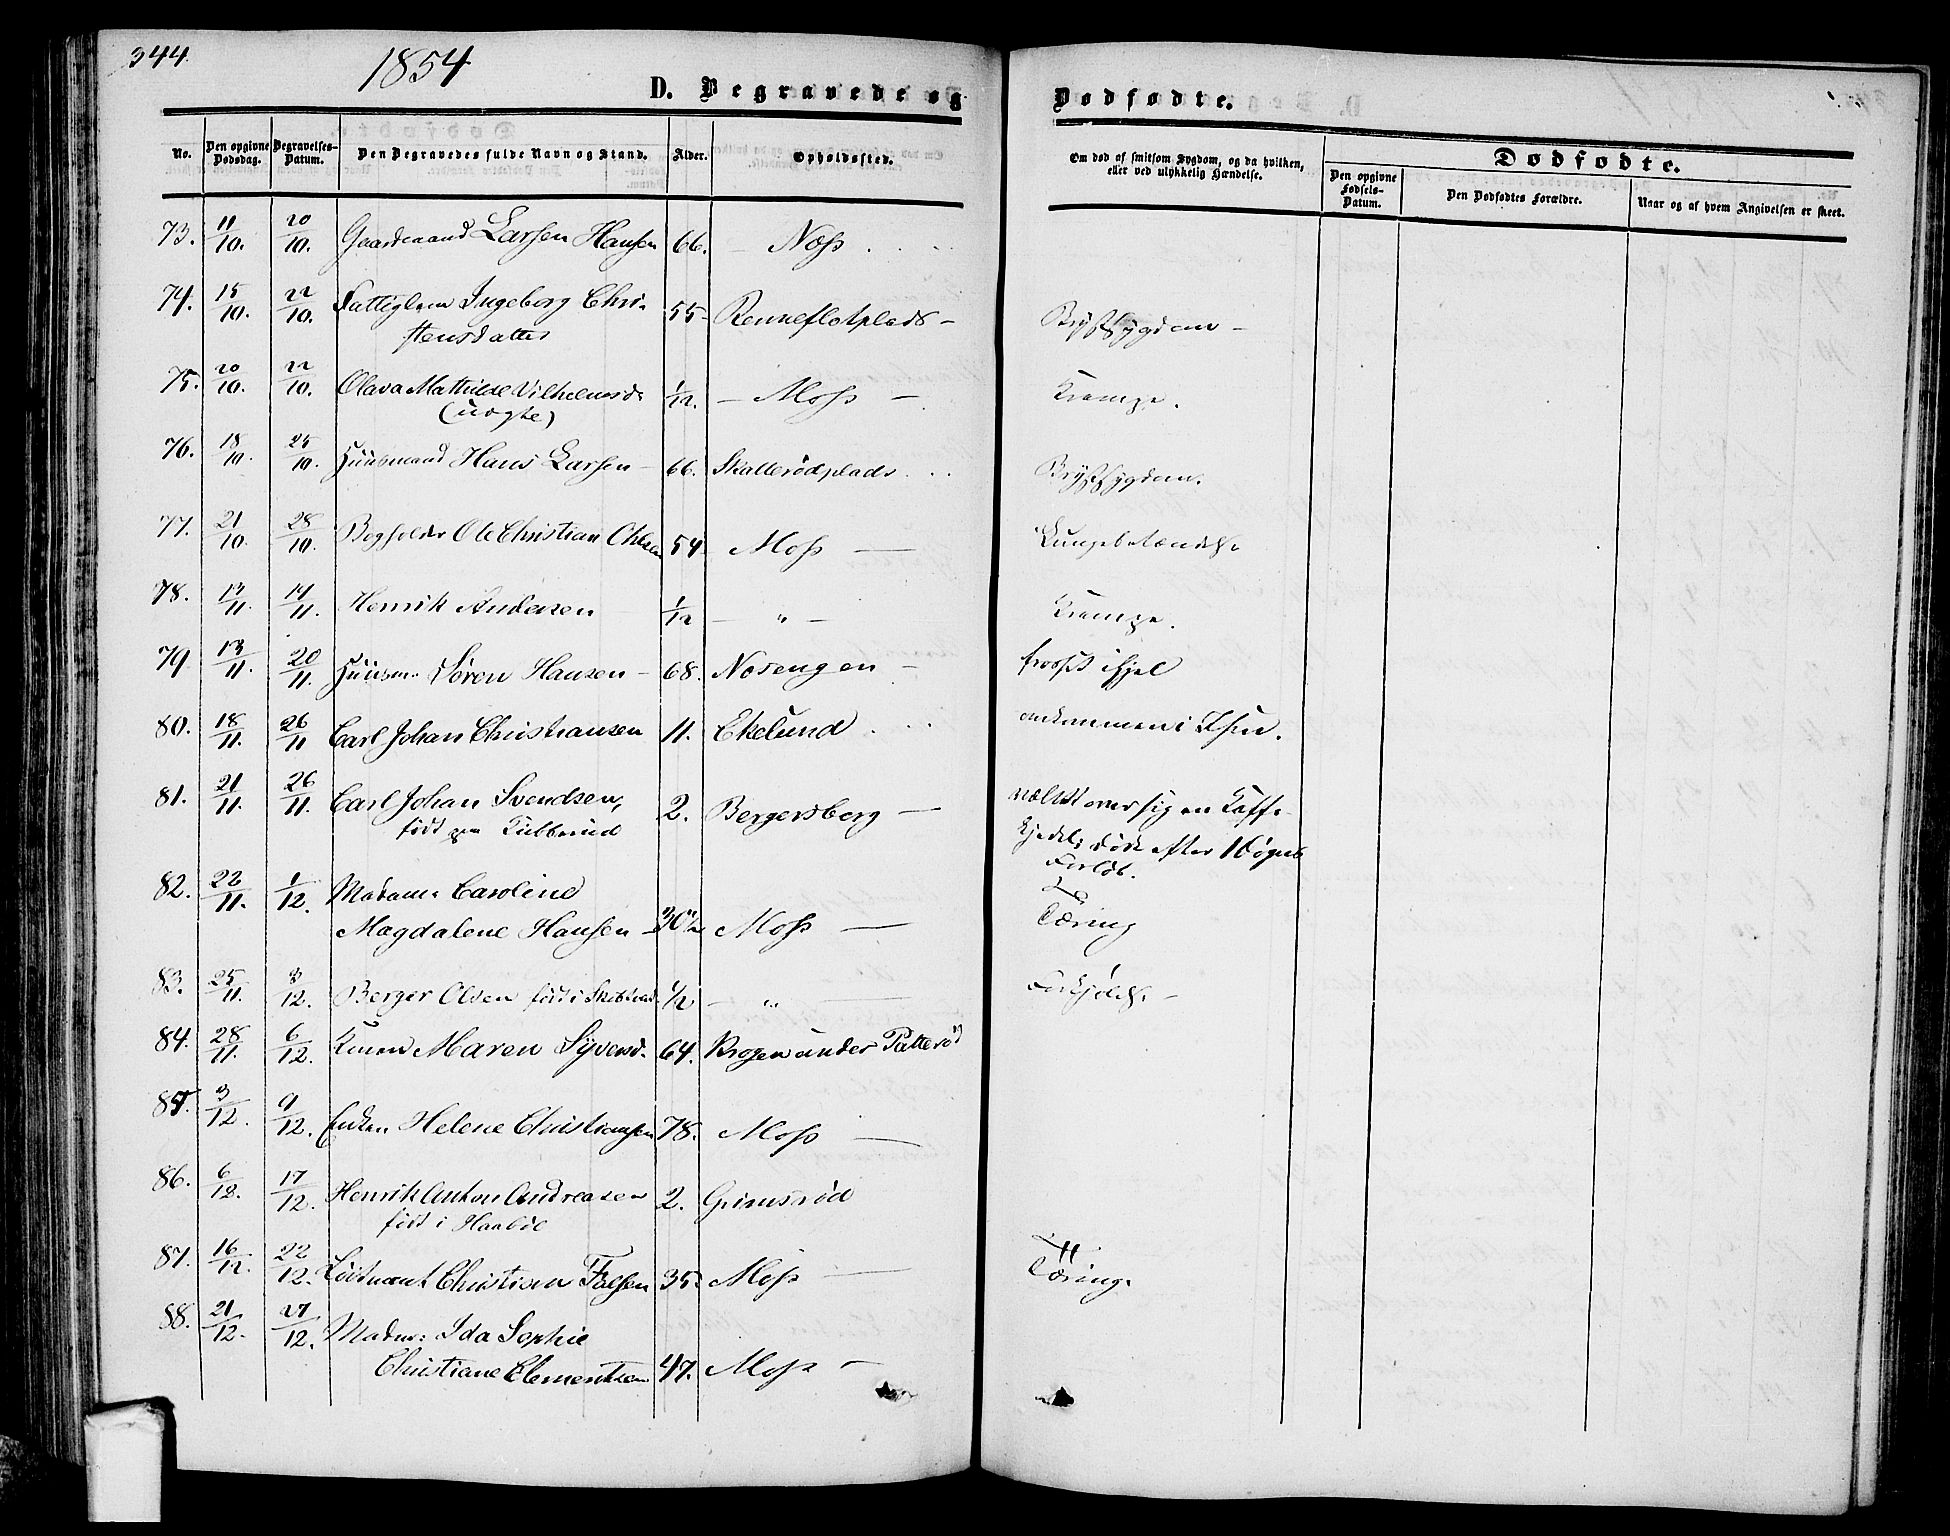 344
1854
D. Begravede og Dødfødte.
No. Den opgivne Dødsdag. Begravelses-Datum. Den Begravedes fulde Navn og Stand. Alder. Opholdssted. Om død af smitsom Sygdom, og da hvilken, eller ved ulykkelig Hændelse. Dødfødte.
Den opgivne Fødsels-Datum. Den Dødfødtes Forældre. Naar og af hvem Angivelsen er skeet.
73. 11/10. 20/10. Gaardmand Larsen Hansen 66. – Næss
74. 15/10. 22/10. Fattiglem Ingeborg Chri-
stensdatter 55 – Renneflotplads – Brystsygdom –
75. 20/10. 22/10. Olava Mathilde Vilhelmsd:
(uægte) 1/12. – Moss – Krampe.
76. 18/10. 25/10. Huusmand Hans Larsen – 66. Skallerødplads Brystsygdom.
77. 21/10. 28/10. Bogholder Ole Christian Olsen 54. Moss — Lungebetændelse
78. 13/11. 17/11. Henrik Andersen 1/12 – " – Krampe.
79 13/11. 20/11. Huusm: Søren Hansen – 68. Norengen – frosset ihjel
80. 18/11. 26/11 Carl Johan Christiansen 11. Ekelund omkommen i
81. 21/11. 26/11. Carl Johan Svendsen,
født paa Kubberud 2. Bergersberg — væltet over sig en Kaffe-
kjedel; døde efter 1 Døgns
Forløb.
82. 22/11. 1/12. Madame Caroline
Magdalene Hansen – 30 1/2 Moss — Tæring
83. 25/11. 3/12. Berger Olsen født i 1/2 – " — Forkjølelse –
84. 28/11. 6/12. Konen Maren Syversd: 64. Krogen under Patterød
85. 3/12. 9/12. Enken Helene Christiansen 78. Moss —
86. 6/12. 17/12. Henrik Anton Andreasen
født i Haabøl 2. Grimsrød
87. 16/12. 22/12. Løitnant Christian Falsen 35. Moss — Tæring.
88. 21/12. 27/12. Madm: Ida Sophie
Christiane Clementsen 47. Moss –